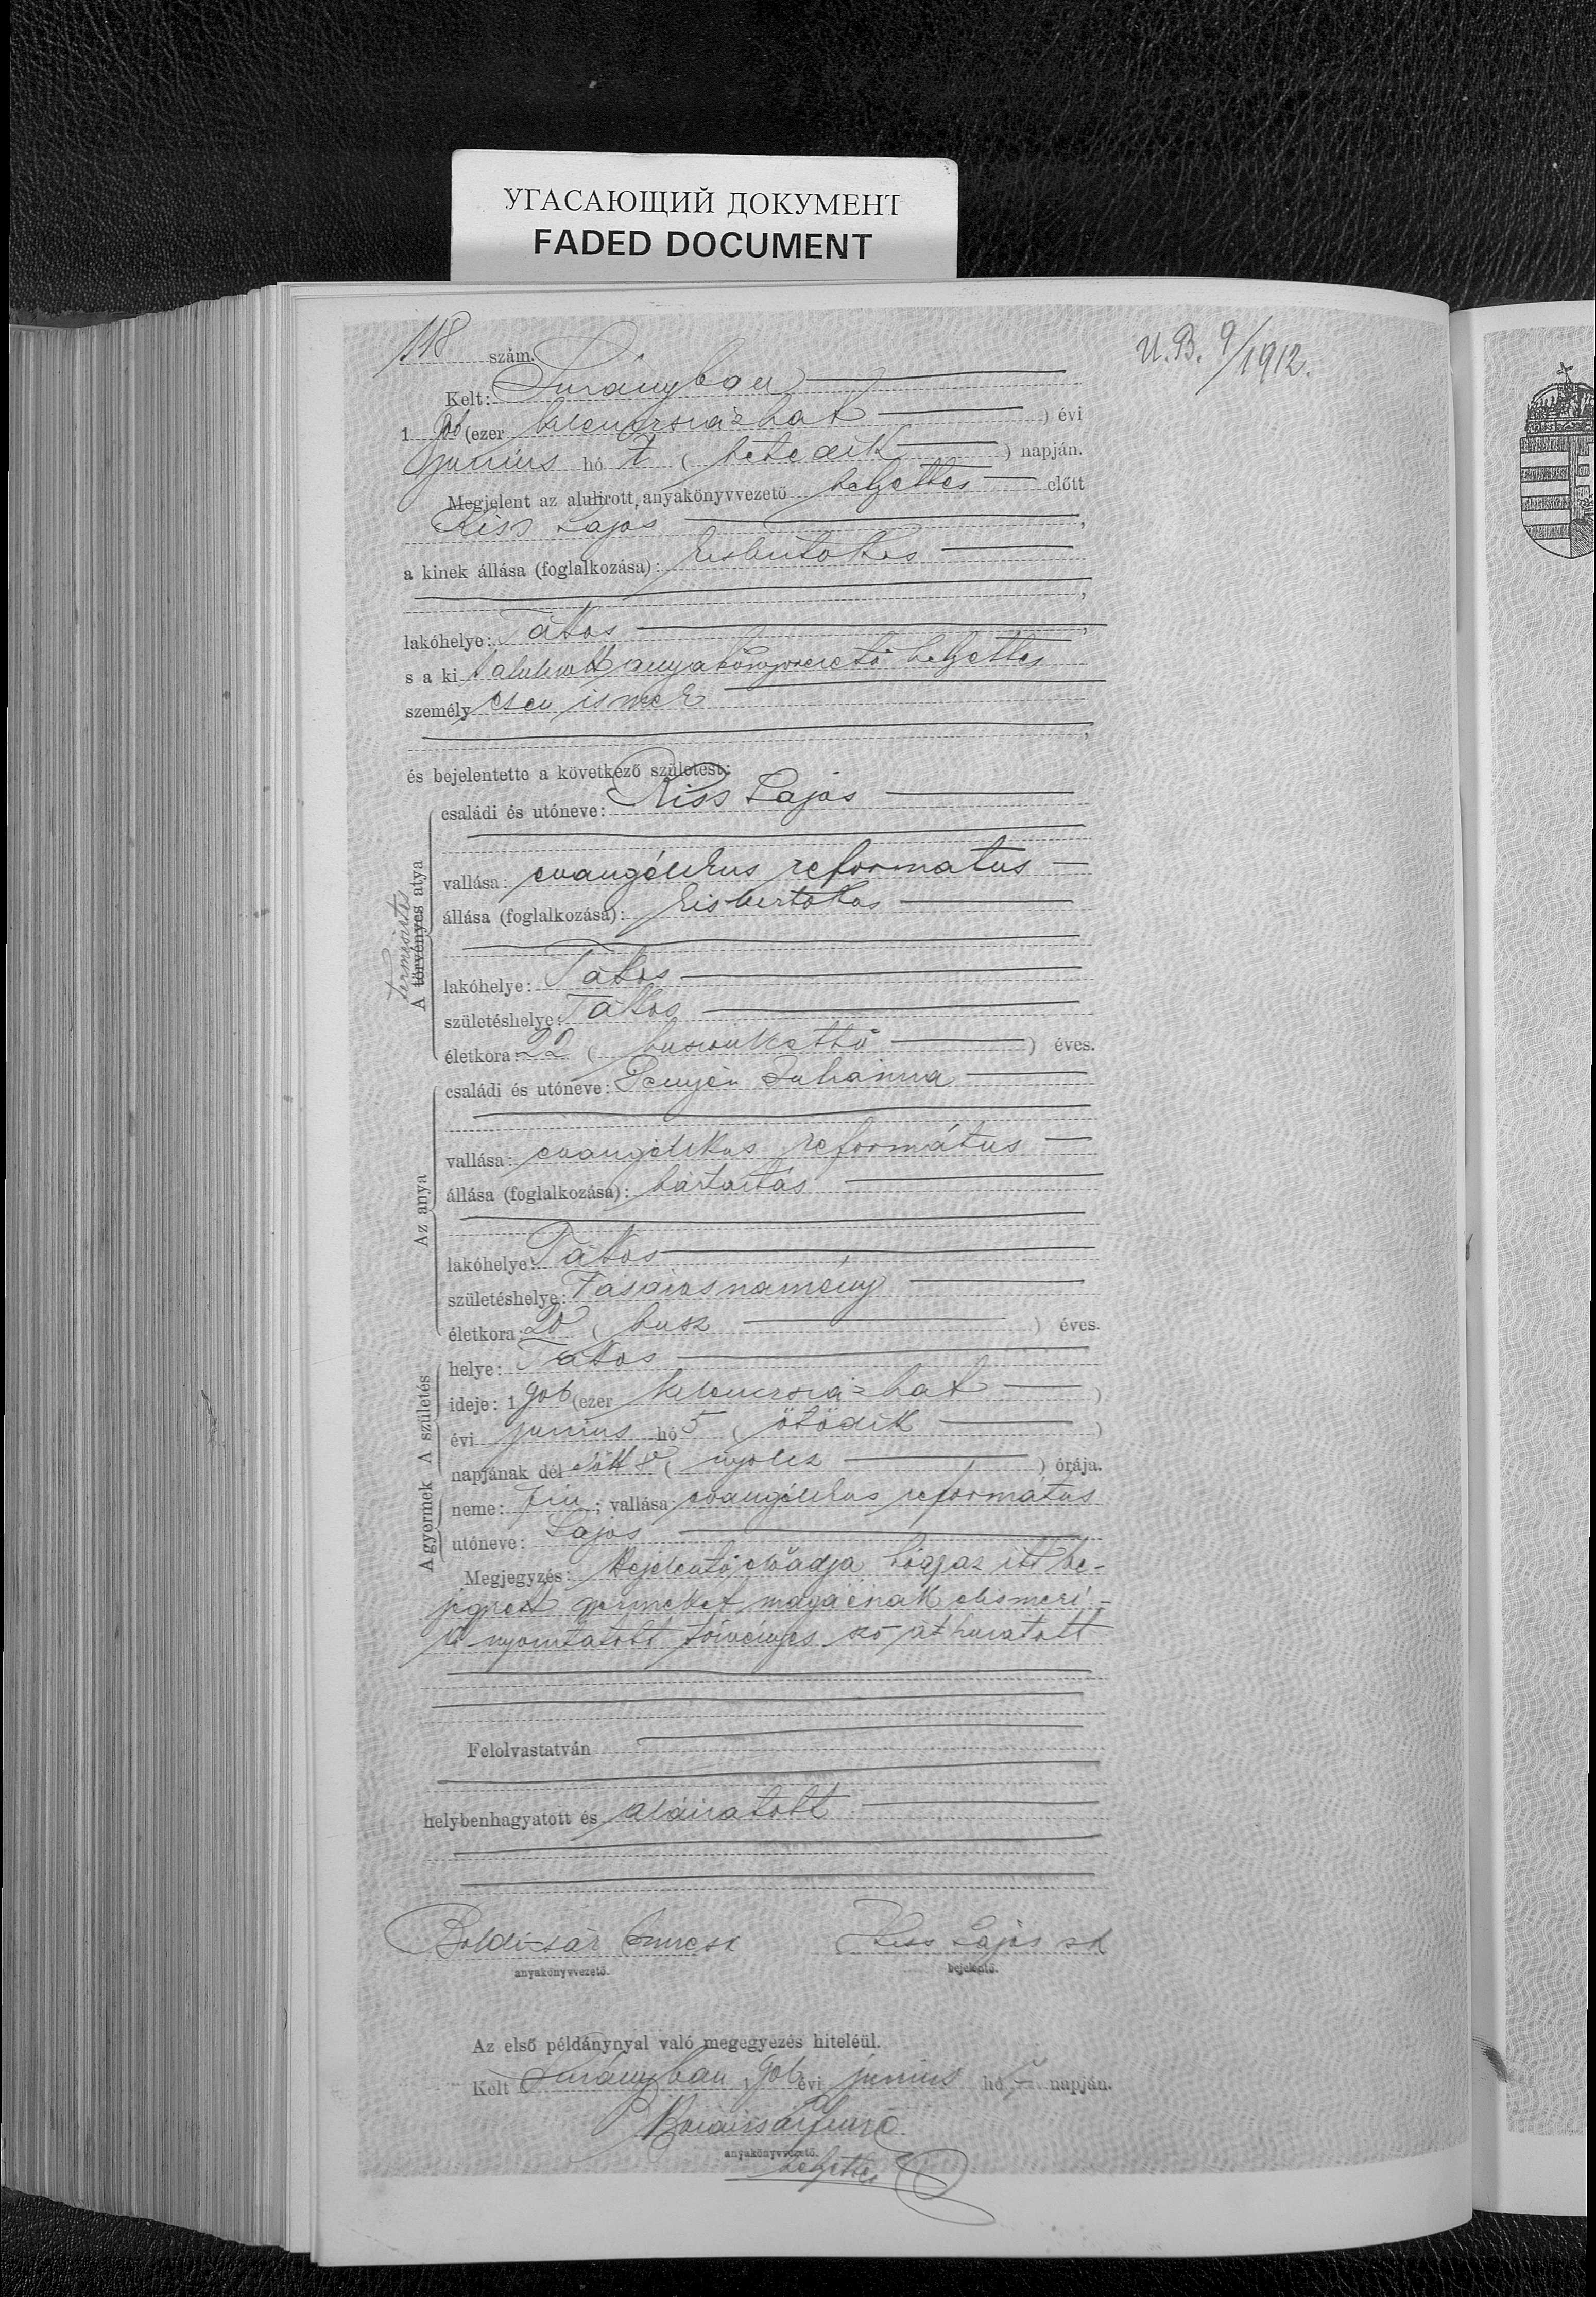 УГАСАЮЩИЙ ДОКУМЕНТ
FADED DOCUMENT
118 szám.
U. B. 9/1912.
Kelt: Surányban
1 906 (ezer kilenczszázhat ) évi
junius hó 7 ( hetedik ) napján.
Megjelent az alulirott anyakönyvvezető helyettes előtt
Kiss Lajos ,
a kinek állása (foglalkozása): kisbirtokos
,
lakóhelye: Tákos ,
s a ki alulirott anyakönyvvezető helyettes
személyesen ismer
,
és bejelentette a következő születést:
A törvényes atya
természetes
családi és utóneve: Kiss Lajos
vallása: evangélikus reformatus
állása (foglalkozása): kisbirtokos
lakóhelye: Tákos
születéshelye: Tákos
életkora: 22 ( huszonkettő ) éves.
Az anya
családi és utóneve: Juliánna
vallása: evangélikus református
állása (foglalkozása): háztartás
lakóhelye: Tákos
születéshelye: Vásárosnamény
életkora: 20 ( husz ) éves.
A születés
helye: Tákos
ideje: 1 906 (ezer kilenczszázhat )
évi junius hó 5 ( ötödik )
napjának délelőtt 8 ( nyolcz ) órája.
A gyermek
neme: fiu ; vallása: evangélikus református
utóneve: Lajos
Megjegyzés: Bejelentő előadja hogy az itt be-
jegyzett gyermeket magáénak elismeri
A nyomtatott törvényes szó áthuzatott
Felolvastatván
helybenhagyatott és aláiratott
Boldizsár Imre sk
anyakönyvvezető.
Kiss Lajos sk
bejelentő.
Az első példánynyal való megegyezés hiteléül.
Kelt Surányban, 906 évi junius hó 7 napján.
Boldizsár Imre
anyakönyvvezető.
helyettes